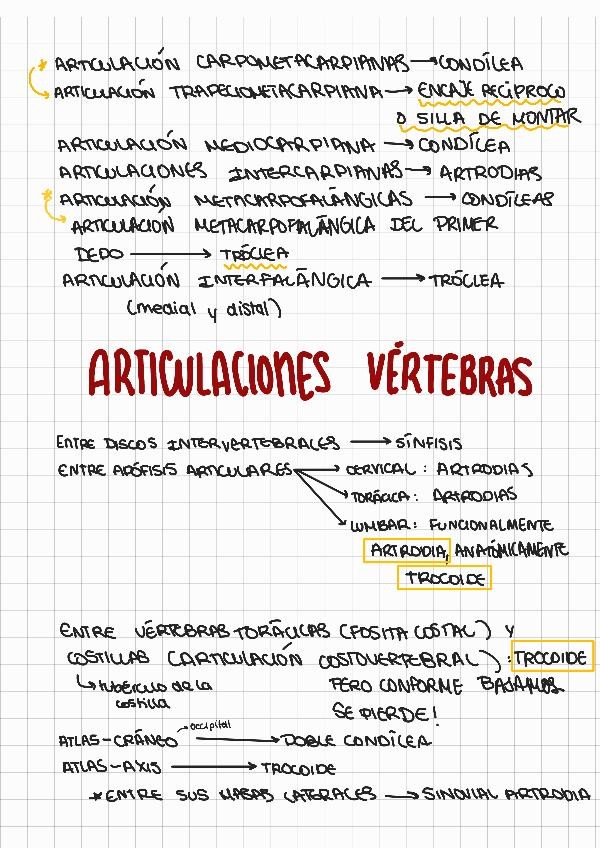 * ARTICULACIÓN CARPOMETACARPIANAS → CONDÍLEA
ARTICULACIÓN TRAPECIOMETACARPIANA → ENCAJE RECÍPROCO
O SILLA DE MONTAR
ARTICULACIÓN MEDIOCARPIANA → CONDÍLEA
ARTICULACIONES INTERCARPIANAS → ARTRODIAS
* ARTICULACIÓN METACARPOFALÁNGICAS → CONDÍLEAS
ARTICULACIÓN METACARPOFALÁNGICA DEL PRIMER
DEDO → TRÓCLEA
ARTICULACIÓN INTERFALÁNGICA → TRÓCLEA
(medial y distal)
ARTICULACIONES VÉRTEBRAS
ENTRE DISCOS INTERVERTEBRALES → SÍNFISIS
ENTRE APÓFISIS ARTICULARES → CERVICAL: ARTRODIAS
TORÁCICA: ARTRODIAS
LUMBAR: FUNCIONALMENTE
ARTRODIA, ANATÓMICAMENTE
TROCOIDE
ENTRE VÉRTEBRAS TORÁCICAS (FOSITA COSTAL) Y
COSTILLAS (ARTICULACIÓN COSTOVERTEBRAL): TROCOIDE
↳ tubérculo de la PERO CONFORME BAJAMOS
costilla SE PIERDE!
→ occipital
ATLAS-CRÁNEO → DOBLE CONDÍLEA
ATLAS-AXIS → TROCOIDE
* ENTRE SUS MASAS LATERALES → SINOVIAL ARTRODIA